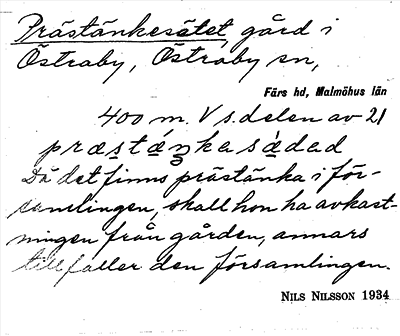 Prästänkesätet, gård i
Östraby, Östraby sn,
Färs hd, Malmöhus län
400 m. V s. delen av 21
præstæŋkasàdad
Då det finns prästänka i för-
samlingen, skall hon ha avkast-
ningen från gården, annars
tillfaller den församlingen.
NILS NILSSON 1934